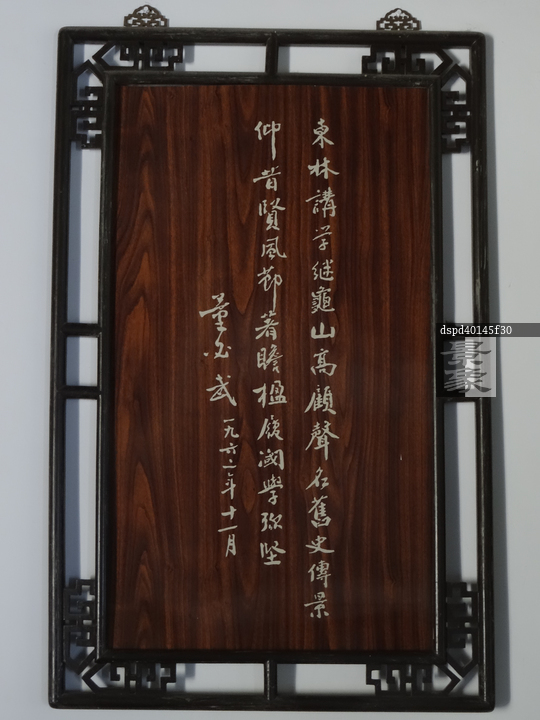 東林講学继龜山高顧聲名舊史傳景
仰昔賢風節著瞻楹履阈學弥坚
董必武 一九六二年十一月
dspd40145f30